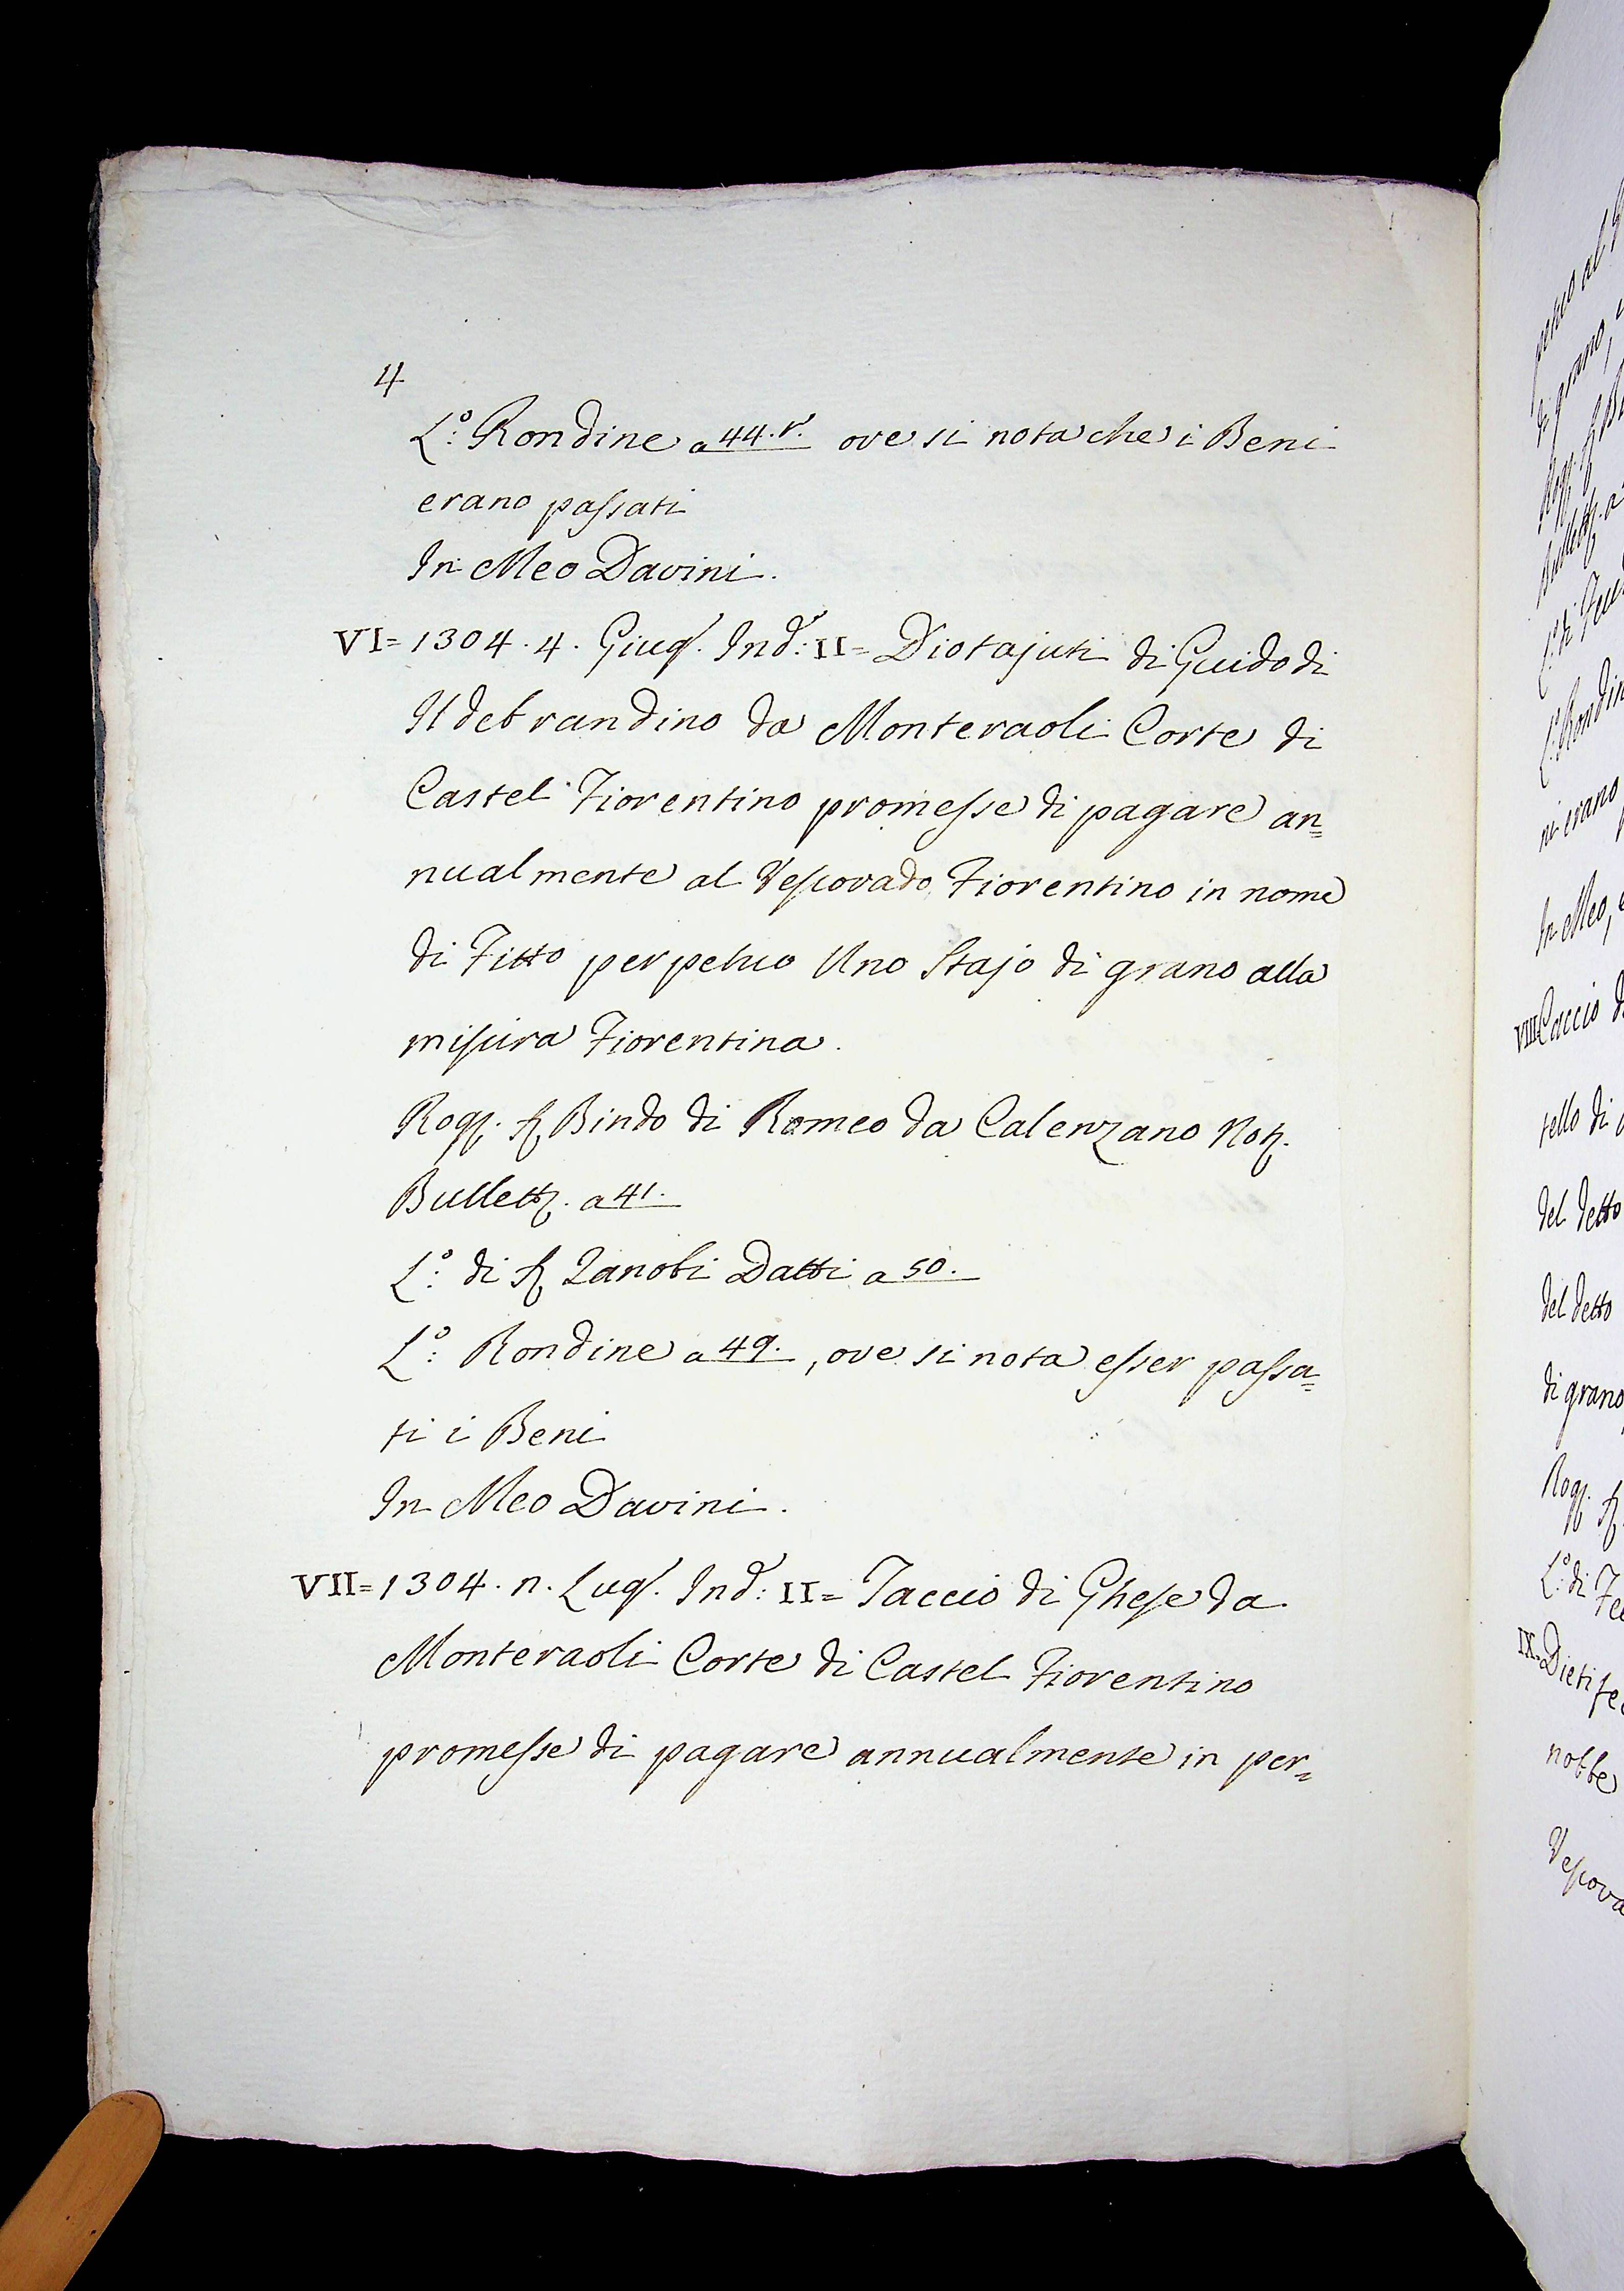 4
L.º Rondine a 44.t. ove si nota che i Beni
erano passati
In Meo Davini.
VI = 1304. 4. Giug. Ind: II = Diotajuti di Guido di
Ildebrandino da Monteraoli Corte di
Castel Fiorentino promesse di pagare an=
nualmente al Vescovado Fiorentino in nome
di Fitto perpetuo Uno Stajo di grano alla
misura Fiorentina.
Rog. Sr Bindo di Romeo da Calenzano Not.
Bullett. a 41.
L.º di Sr Zanobi Datti a 50.
L.º Rondine a 49., ove si nota esser passa=
ti i Beni
In Meo Davini.
VII = 1304. n. Lug. Ind: II = Jaccio di Ghese da
Monteraoli Corte di Castel Fiorentino
promesse di pagare annualmente in per=
di grano,
L.º Rondin
ni erano
In Meo,
VIII Caccio d
tello di
del detto
del detto
di grano
Rog. Sr
L.º di
IX.
nobbe
Vescova